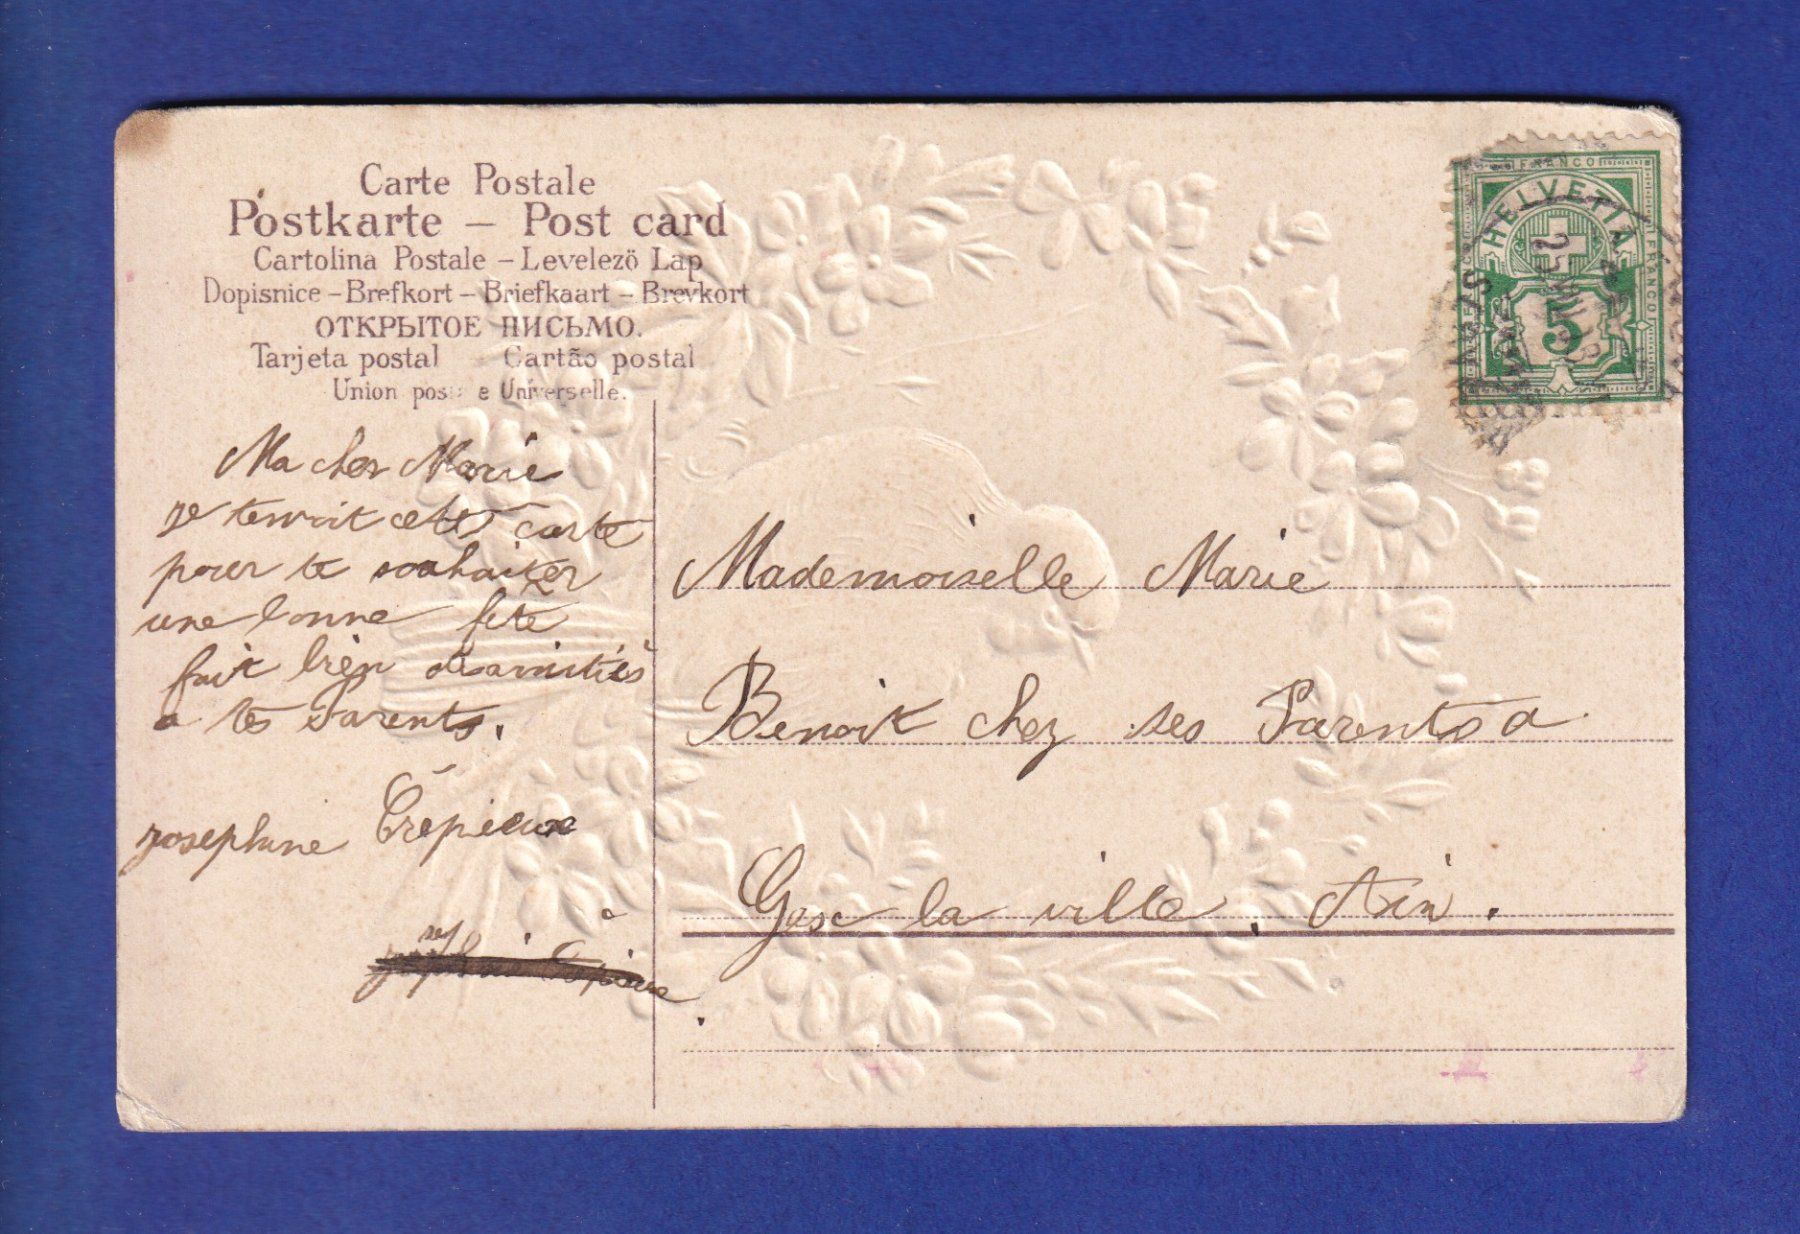 Carte Postale
Postkarte – Post card
Cartolina Postale – Levelezö Lap
Dopisnice – Brefkort – Briefkaart – Brevkort
ОТКРЫТОЕ ПИСЬМО.
Tarjeta postal Cartão postal
Union pos e Universelle.
FRANCO
HELVETIA
FRANCO
5
Ma cher Marie
je tenvoit cette carte
pour te souhaiter
une bonne fete
fait bien desamitiés
a tes Parents.
Josephine Crépieux
Mademoiselle Marie
Benoit chez ses Parents a
Gesc la ville, Ain.